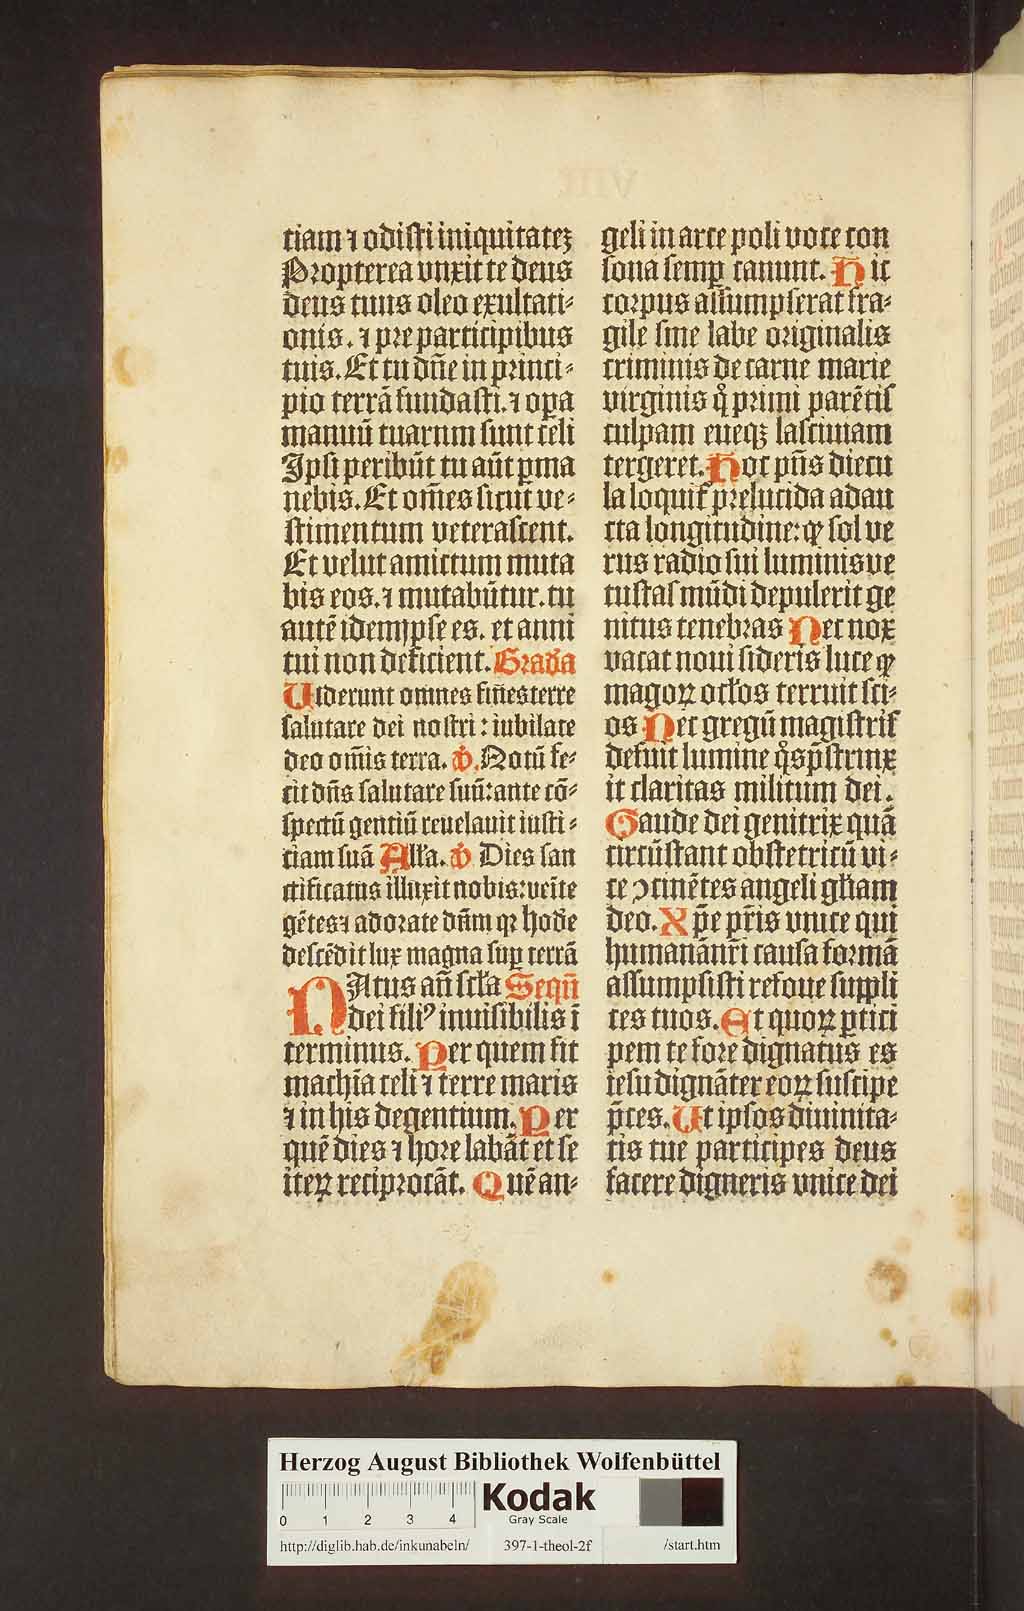 tiam ⁊ odisti iniquitatez
Propterea vnxit te deus
deus tuus oleo exultati-
onis. ⁊ pre participibus
tuis. Et tu dn̄e in princi-
pio terrā fundasti. ⁊ oꝑa
manuū tuarum sunt celi
Ipsi peribūt tu aūt ꝑma
nebis. Et om̄es sicut ve-
stimentum veterascent.
Et velut amictum muta
bis eos. ⁊ mutabūtur. tu
autē idem ipse es. et anni
tui non deficient. Grada
Viderunt omnes fines terre
salutare dei nostri: iubilate
deo om̄is terra. ꝟ. Notū fe-
cit dn̄s salutare suū: ante cō-
spectū gentiū reuelauit iusti-
ciam suā Alla. ꝟ Dies san
ctificatus illuxit nobis: venite
gētes ⁊ adorate dn̄m qꝛ hodie
descēdit lux magna suꝑ terrā
NAtus an̄ scl̄a Sequn̄
dei filiꝰ inuisibilis ī
terminus. Per quem fit
machīa celi ⁊ terre maris
⁊ in his degentium. Per
quē dies ⁊ hore labāt et se
iteꝝ reciprocāt. Quē an-
geli in arce poli voce con
sona semꝑ canunt. Hic
corpus assumpserat fra-
gile sine labe originalis
criminis de carne marie
virginis q̊ primi parētis
culpam eueqꝫ lasciuiam
tergeret. Hoc pn̄s diecu
la loquit᷑ prelucida adau
cta longitudine: ꝙ sol ve
rus radio sui luminis ve
tustas mūdi depulerit ge
nitus tenebras Nec nox
vacat noui sideris luce ꝙ
magoꝝ ocl̄os terruit sci-
os Nec gregū magistris
defuit lumine q̊s p̄strinx
it claritas militum dei.
Gaude dei genitrix quā
circūstant obstetricū vi-
ce ↄcinētes angeli gl̄iam
deo. Xp̄e pr̄is vnice qui
humanā nr̄i causa formā
assumpsisti refoue suppli
ces tuos. Et quoꝝ ꝑtici
pem te fore dignatus es
iesu dignāter eoꝝ suscipe
p̄ces. Ut ipsos diuinita-
tis tue participes deus
facere digneris vnice dei
Herzog August Bibliothek Wolfenbüttel
0 1 2 3 4
Kodak
Gray Scale
http://diglib.hab.de/inkunabeln/ 397-1-theol-2f /start.htm